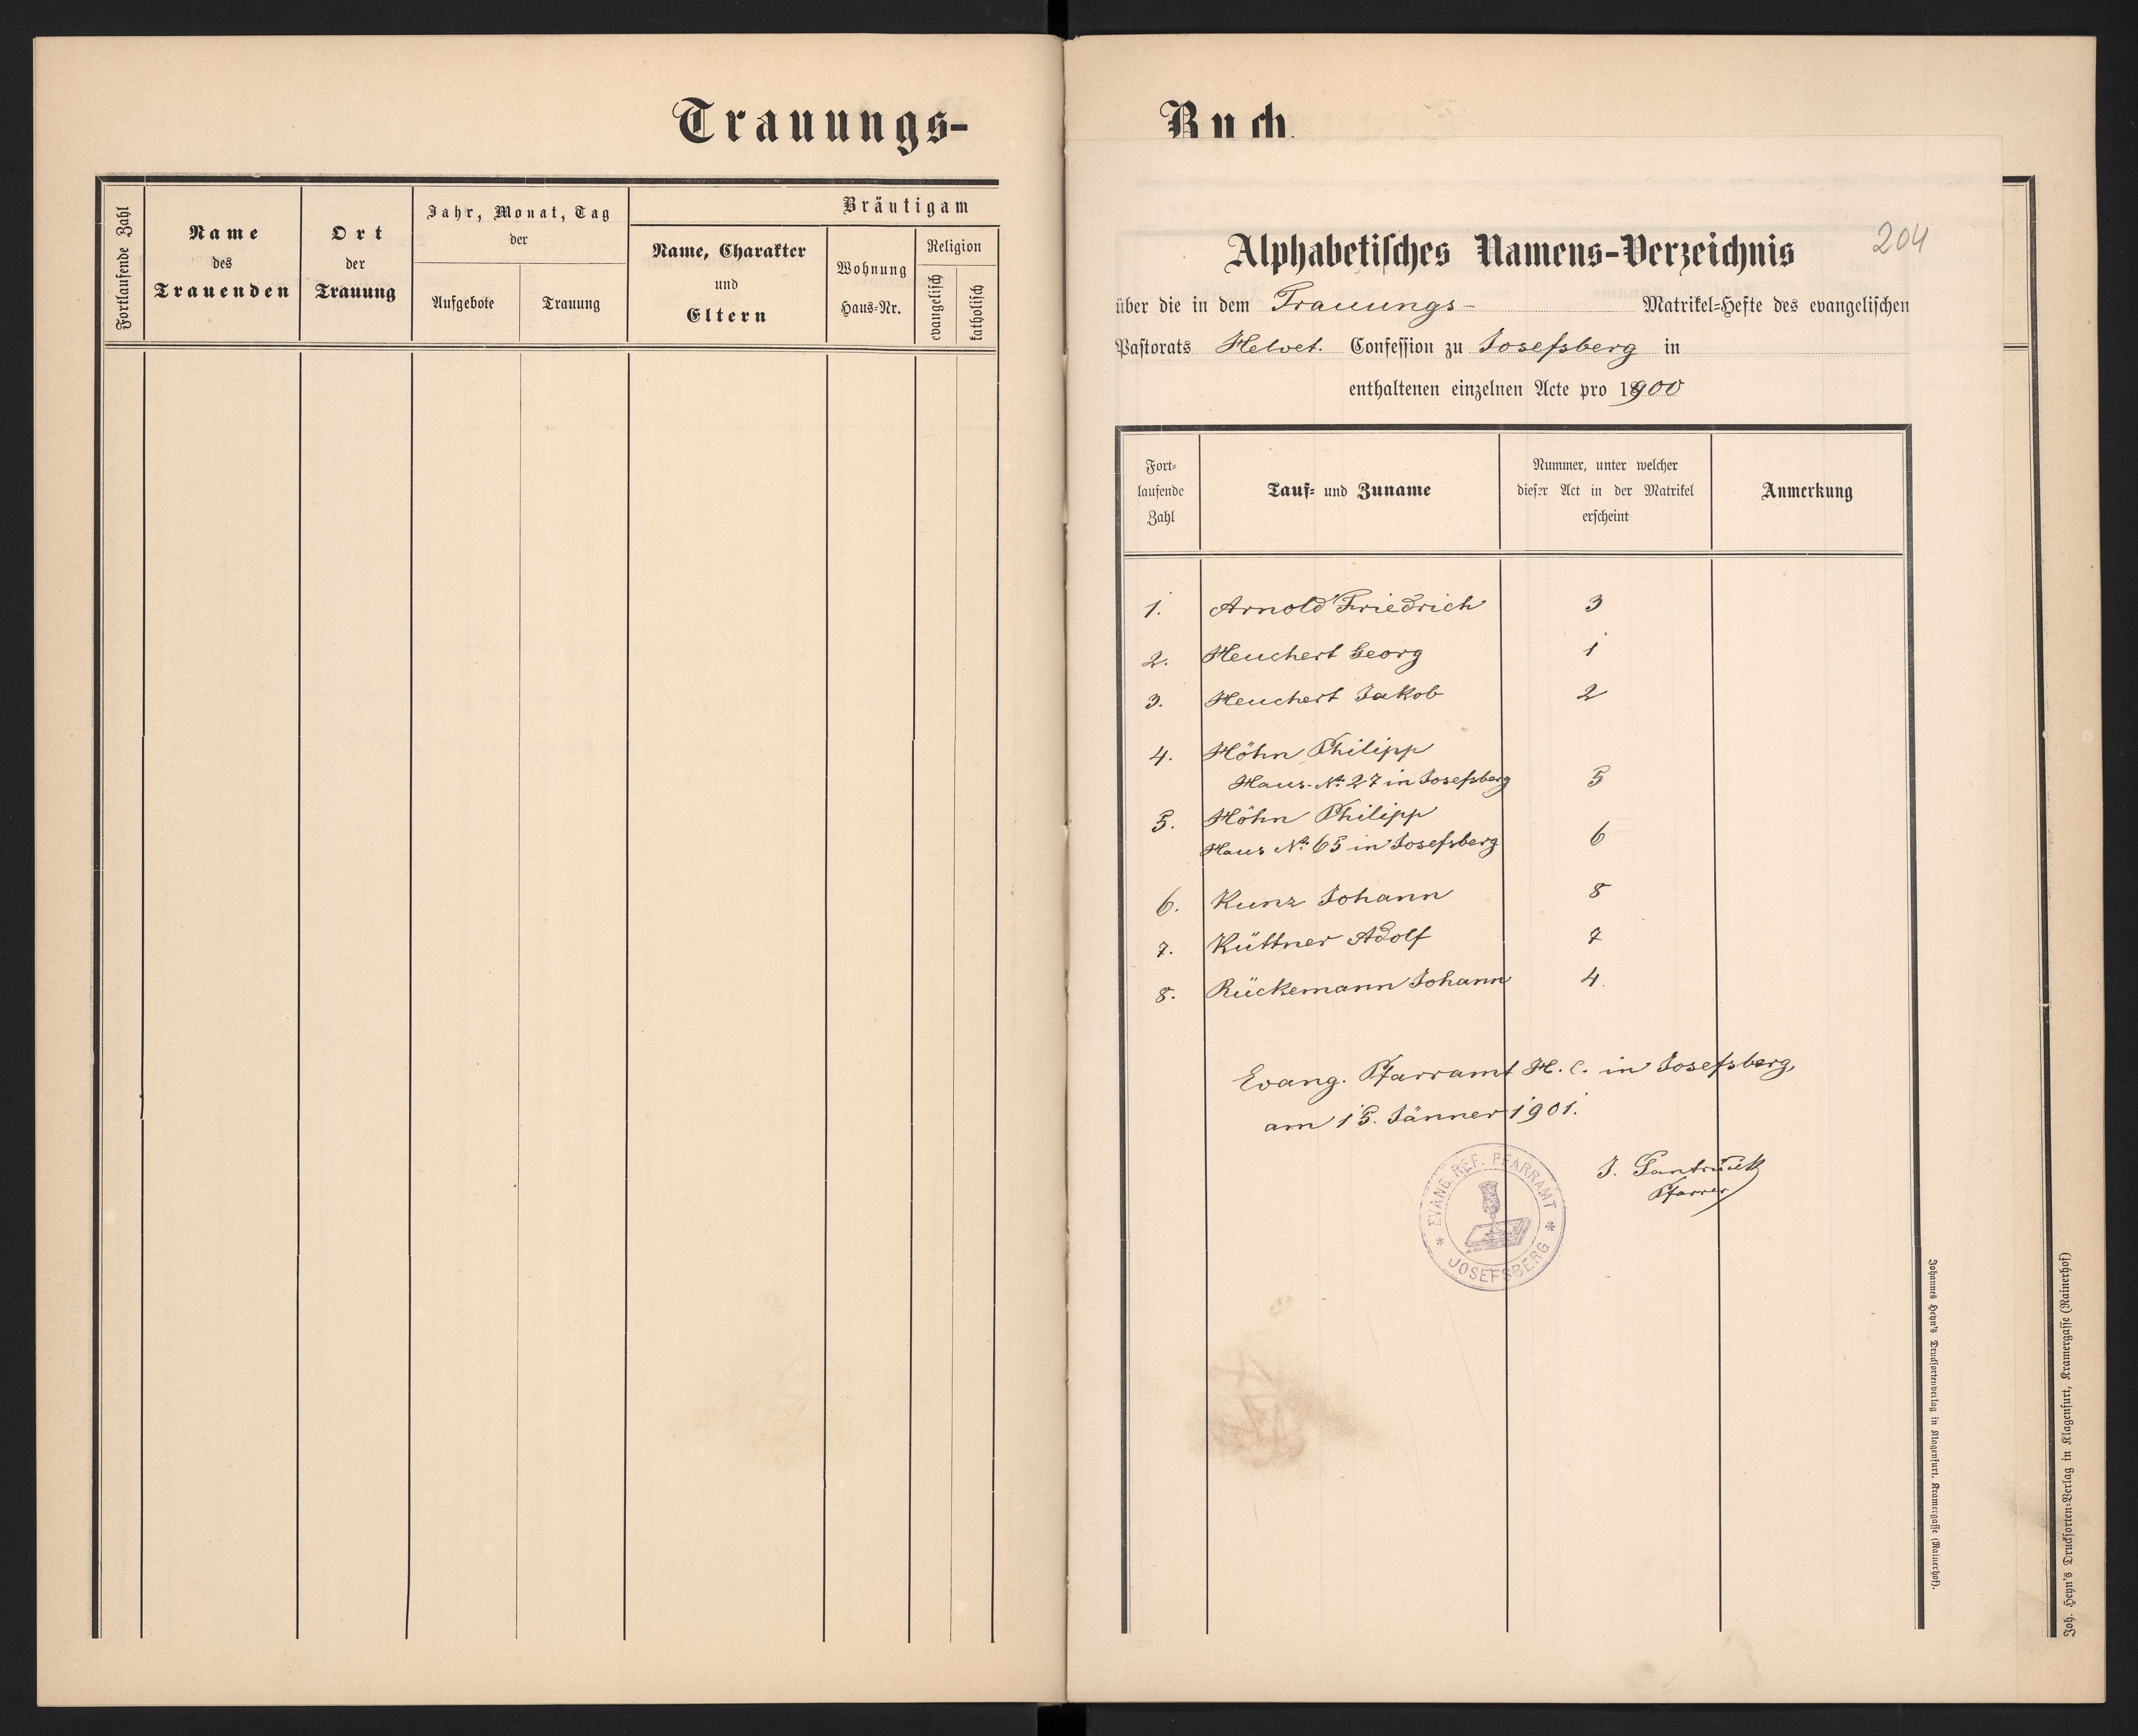 Trauungs-
Fortlaufende Zahl
Name
des
Trauenden
Ort
der
Trauung
Jahr, Monat, Tag
der
Aufgebote
Trauung
Bräutigam
Name, Charakter
und
Eltern
Wohnung
Haus-Nr.
Religion
evangelisch
katholisch
Buch.
204
Alphabetisches Namens-Verzeichnis
über die in dem Trauungs- Matrikel-Hefte des evangelischen
Pastorats Helvet. Confession zu Josefsberg in
enthaltenen einzelnen Acte pro 1900
Fort-
laufende
Zahl
Tauf- und Zuname
Nummer, unter welcher
dieser Act in der Matrikel
erscheint
Anmerkung
1. Arnold Friedrich 3
2. Heuchert Georg 1
3. Heuchert Jakob 2
4. Höhn Philipp
Haus-No. 27 in Josefsberg 5
5. Höhn Philipp
Haus No. 65 in Josefsberg 6
6. Kunz Johann 8
7. Küttner Adolf 7
8. Rückemann Johann 4.
Evang. Pfarramt H. C. in Josefsberg,
am 15. Jänner 1901.
J.
Pfarrer
* EVANG. REF. PFARRAMT *
JOSEFSBERG
Johannes Heyn's Drucksortenverlag in Klagenfurt, Kramergasse (Rainerhof).
Joh. Heyn's Drucksorten-Verlag in Klagenfurt, Kramergasse (Rainerhof)